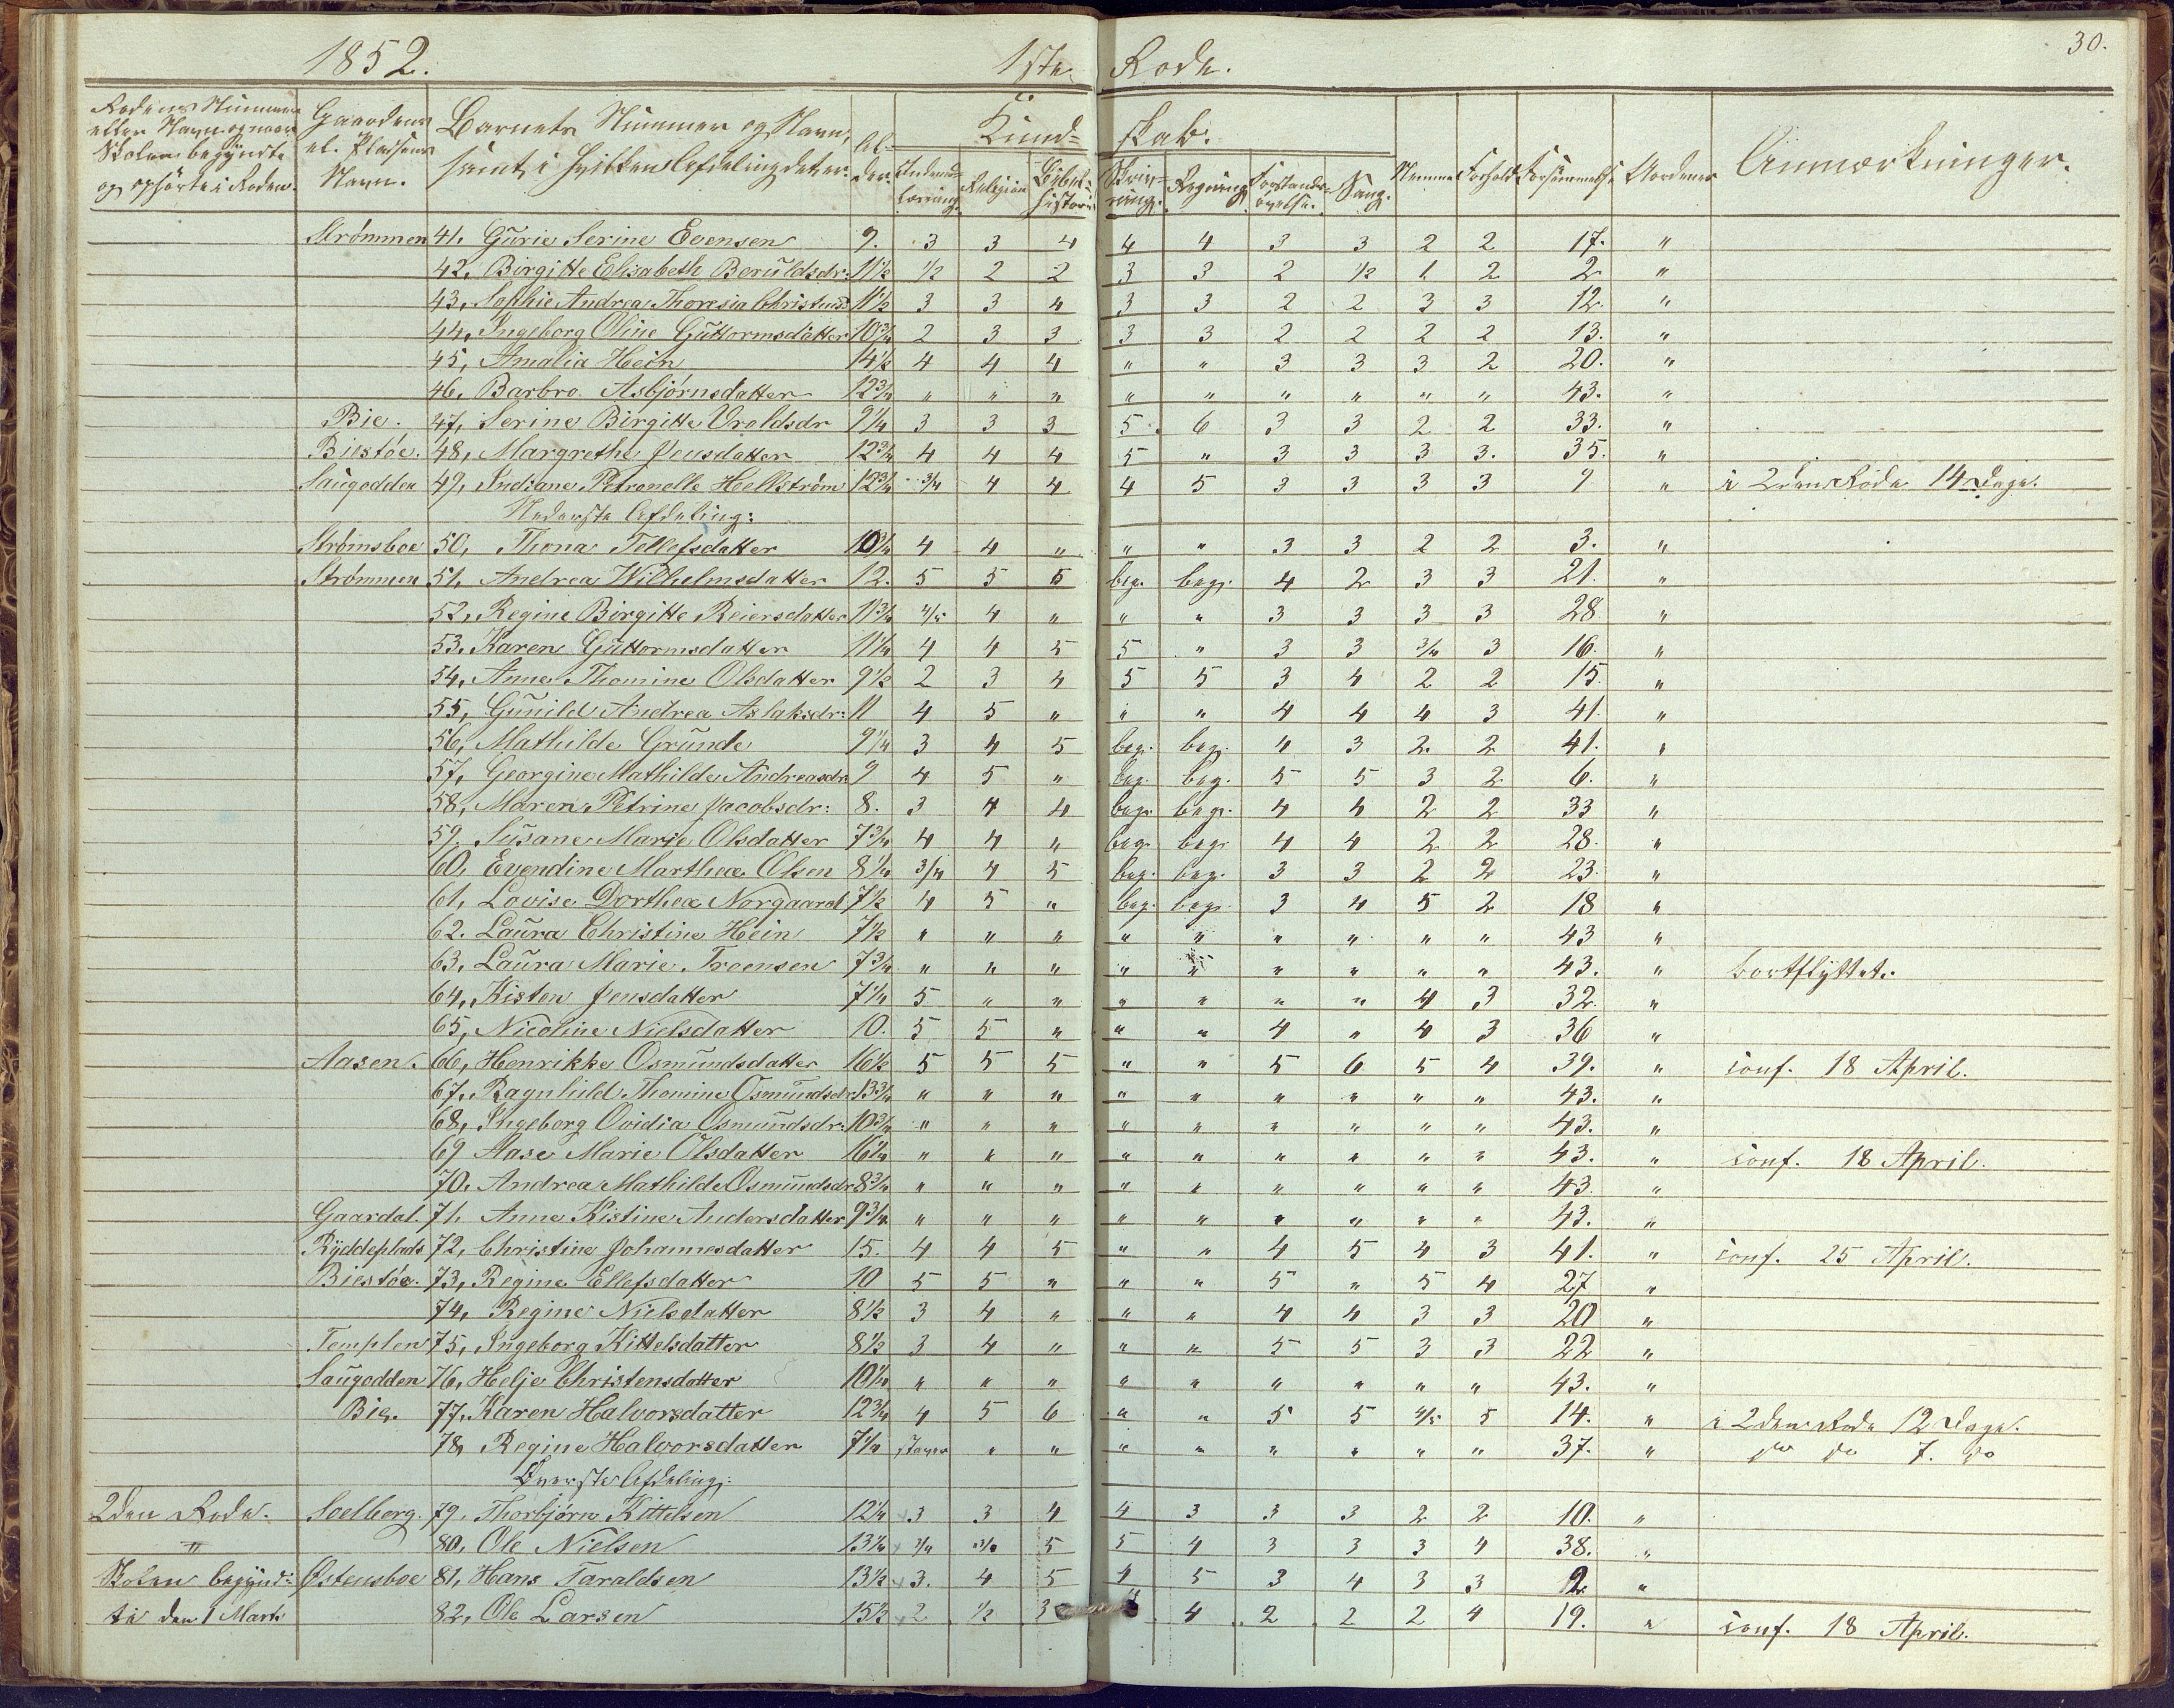 30.
1852. 1ste Rode.
Rodens Nummer eller Navn og naar Skolen begyndte og ophørte i Roden. Gaardens el. Pladsens Navn. Barnets Nummer og Navn, samt i hvilken Afdeling det er. Al- der. Kund= skab. Indenad- læsning. Religion Bibel- historie Skriv- ning. Regning Forstands- øvelse. Sang. Nemme Forhold Forsømmelse Anmærkninger.
Strømmen 41. Gurie Serine Evensen 9. 3 3 4 4 4 3 3 2 2 17. "
42, Birgitte Elisabeth Beruldsdr: 11½ ½ 2 2 3 3 2 ½ 1 2 2 "
43, Sophie Andrea Thoresia 11½ 3 3 4 3 3 2 2 3 3 12. "
44, Ingeborg Oline Guttormsdatter 10¾ 2 3 3 3 3 2 2 2 2 13. "
45, Amalia Hein 14½ 4 4 4 " " 3 3 3 2 20. "
46, Barbro Asbjørnsdatter 12¾ " " " " " " " " " 43. "
Bie. 47, Serine Birgitte Oroldsdr 9¼ 3 3 3 5 6 3 3 2 2 33. "
Biestøe. 48, Margrethe Jensdatter 12¾ 4 4 4 5 " 3 3 3 3. 35. "
Saugodden 49, Indiane Petronelle Hellstrøm 12¾ ¾ 4 4 4 5 3 3 3 3 9 " i 2den Rode 14 Dage.
Nederste Afdeling:
Strømsboe 50, Thona Tellefsdatter 10¾ 4 4 " " " 3 3 2 2 3. "
Strømmen 51, Andrea Wilhelmsdatter 12. 5 5 5 beg. beg. 4 2 3 3 21. "
52, Regine Birgitte Reiersdatter 11¾ 4/5 4 " " " 3 3 3 3 28 "
53. Karen Guttormsdatter 11¼ 4 4 5 5 " 3 3 ¾ 3 16. "
54, Anne Thomine Olsdatter 9½ 2 3 4 5 5 3 4 2 2 15. "
55, Gunild Andrea Aslaksdr: 11 4 5 " " " 4 4 4 3 41. "
56, Mathilde Grunde 9¼ 3 4 5 beg. beg. 4 3 2 2 41. "
57, Georgine Mathilde Andreasdr 9 4 5 " beg. beg. 5 5 3 2 6. "
58, Maren Petrine Jacobsdr: 8. 3 4 4 beg. beg. 4 4 2 2 33 "
59. Susane Marie Olsdatter 7¾ 4 4 " beg. beg. 4 4 2 2 28. "
60, Evendine Marthea Olsen 8¼ ¾ 4 5 beg. beg. 3 3 2 2 23. "
61, Lovise Dorthea Norgaard 7½ 4 5 " beg. beg. 3 4 5 2 18 "
62. Laura Christine Hein 7½ " " " " " " " " " 43 "
63, Laura Marie Troensen 7¾ " " " " " " " " " 43. " bortflyttet.
64, Kisten Jensdatter 7¼ 5 " " " " " " 4 3 32. "
65, Nicoline Nielsdatter 10. 5 5 " " " 4 " 4 3 36 "
Aasen. 66, Henrikke Osmundsdatter 16½ 5 5 5 " " 5 6 5 4 39. " conf. 18 April.
67. Ragnhild Thomine Osmundsdr. 13¾ " " " " " " " " " 43. "
68, Ingeborg Ovidia Osmundsdr: 10¾ " " " " " " " " " 43. "
69 Aase Marie Olsdatter 16¼ " " " " " " " " " 43. " conf. 18 April.
70. Andrea Mathilde Osmundsdr 8¾ " " " " " " " " " 43. "
Gaardal. 71. Anne Kistine Andersdatter 9¾ " " " " " " " " " 43. "
Ryddeplads 72, Christine Johannesdatter 15. 4 4 5 " " 4 5 4 3 41. " conf. 25 April.
Biestøe. 73, Regine Ellefsdatter 10 5 5 " " " 5 " 5 4 27 "
74, Regine Nielsdatter 8½ 3 4 " " " 4 4 3 3 20 "
Templen 75, Ingeborg Kittelsdatter 8½ 3 4 " " " 5 5 3 3 22 "
Saugodden 76, Helje Christensdatter 10¼ " " " " " " " " " 43. "
Bie. 77, Karen Halvorsdatter 12¾ 4 5 6 " " 5 5 4/5 5 14. " i 2den Rode 12 Dage.
78, Regine Halvorsdatter 7¼ staver " " " " " " " " 37. " do do 7. do
Øverste Afdeling:
2den Rode. Soelberg. 79. Thorbjørn Kittelsen 12¼ 3 3 4 4 3 3 3 2 2 10. "
" 80, Ole Nielsen 13¼ ¾ ¾ 5 5 4 3 3 3 4 38. "
Skolen begynd- Østensboe 81, Hans Taraldsen 13½ 3. 4 5 4 5 3 4 3 3 2 "
te den 1 Marts 82, Ole Larsen 15½ 2 ½ 3 4 4 2 2 2 4 19. " conf. 18 April.